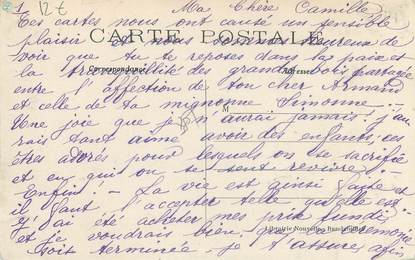 1 12 € Ma Chère Camille
Tes cartes nous ont causé un sensible
plaisir et nous sommes heureux de
CARTE POSTALE
voir que tu te reposes dans la paix et
Correspondance Adresse
la tranquillité des grands bois partagée
entre l'affection de ton cher Armand
et celle de ta mignonne Simonne.
Une joie que je n'aurai jamais! j'au
M
rais tant aimé avoir des enfants, ces
êtres adorés pour lesquels on se sacrifie
et en qui on se sent revivre!
Enfin! - La vie est ainsi faite et
il faut l'accepter telle qu'elle est
j'ai été acheter mes prix
Librairie Nouvelle
et je voudrais bien que la cérémonie
soit terminée je t'assure afin